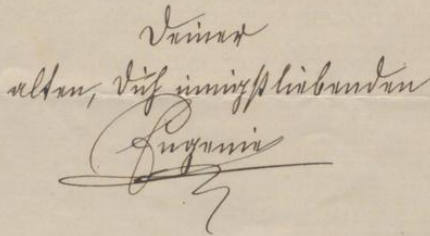 Deiner
alten, Dich innigst liebenden
Eugenie